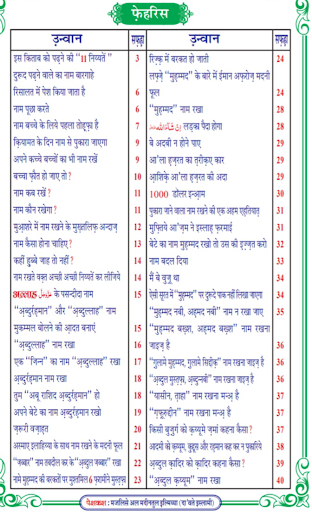 फ़ेहरिस
उन्वान
सफ़हा
उन्वान
सफ़हा
इस किताब को पढ़ने की "11 निय्यतें"
3
रिज़्क़ में बरकत हो जाती
24
दुरूद पढ़ने वाले का नाम बारगाहे
लफ़्ज़े "मुहम्मद" के बारे में ईमान अफ़रोज़ मदनी
रिसालत में पेश किया जाता है
6
फूल
24
नाम पूछा करते
6
"मुहम्मद" नाम रखा
28
नाम बच्चे के लिये पहला तोहफ़ा है
7
लड़का पैदा होगा
28
क़ियामत के दिन नाम से पुकारा जाएगा
9
बे अदबी न होने पाए
29
अपने कच्चे बच्चों का भी नाम रखें
9
आ'ला हज़रत का तरीक़ए कार
29
बच्चा फ़ौत हो जाए तो?
10
आशिक़े आ'ला हज़रत की अदा
29
नाम कब रखें?
11
1000 डॉलर इन्आम
30
नाम कौन रखेगा?
11
पुकारा जाने वाला नाम रखने की एक अहम एहतियात
31
मुआशरे में नाम रखने के मुख़्तलिफ़ अन्दाज़
12
मुफ़्तिये आ'ज़म ने इस्लाह फ़रमाई
31
नाम कैसा होना चाहिए?
13
बेटे का नाम मुहम्मद रखो तो उस की इज़्ज़त करो
32
कहीं हुब्बे जाह तो नहीं?
14
नाम बदल दिया
33
नाम रखते वक़्त अच्छी अच्छी निय्यतें कर लीजिये
14
मैं बे वुज़ू था
34
अल्लाह عَزَّوَجَلَّ के पसन्दीदा नाम
15
ऐसी सूरत में "मुहम्मद" पर दुरूदे पाक नहीं लिखा जाएगा
34
"अब्दुर्रहमान" और "अब्दुल्लाह" नाम
"मुहम्मद नबी, अहमद नबी" नाम न रखा जाए
35
मुकम्मल बोलने की आदत बनाएं
15
"मुहम्मद बख़्श, अहमद बख़्श" नाम रखना
"अब्दुल्लाह" नाम रखा
16
जाइज़ है
36
एक "जिन्न" का नाम "अब्दुल्लाह" रखा
17
"ग़ुलामे मुहम्मद, ग़ुलामे सिद्दीक़" नाम रखना जाइज़ है
36
अब्दुर्रहमान नाम रखा
18
"अब्दुल मुस्तफ़ा, अब्दुन्नबी" नाम रखना जाइज़ है
36
तुम "अबू राशिद अब्दुर्रहमान" हो
18
"यासीन, ताहा" नाम रखना मन्अ है
37
अपने बेटे का नाम अब्दुर्रहमान रखो
19
"ग़फ़ूरुद्दीन" नाम रखना मन्अ है
37
ज़रूरी वज़ाहत
20
किसी बुज़ुर्ग को क़य्यूमे ज़मां कहना कैसा?
37
अस्माए इलाहिय्या के साथ नाम रखने के मदनी फूल
21
आदमी को क़य्यूम, क़ुद्दूस और रहमान कह कर न पुकारिये
38
"जब्बार" नाम तब्दील कर के "अब्दुल जब्बार" रखा
22
अब्दुल क़ादिर को क़ादिर कहना कैसा?
39
नामे मुहम्मद की बरकतों पर मुश्तमिल 6 फ़रामीने मुस्तफ़ा
23
"अब्दुल क़य्यूम" नाम रखा
40
पेशकश : मजलिसे अल मदीनतुल इल्मिय्या (दा'वते इस्लामी)